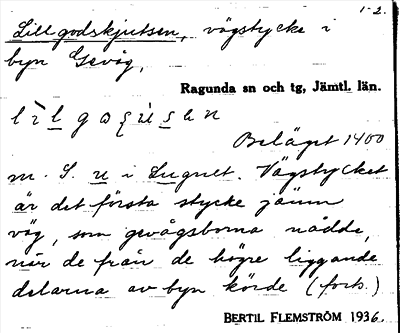 1-2.
Lillgodskjutsen, vägstycke i
byn Gevåg,
Ragunda sn och tg, Jämtl. län.
Beläget 1400
m. S. u i Lugnet. Vägstycket
är det första stycke jämn
väg, som gevågsborna nådde,
när de från de högre liggande
delarna av byn körde (forts.)
BERTIL FLEMSTRÖM 1936.